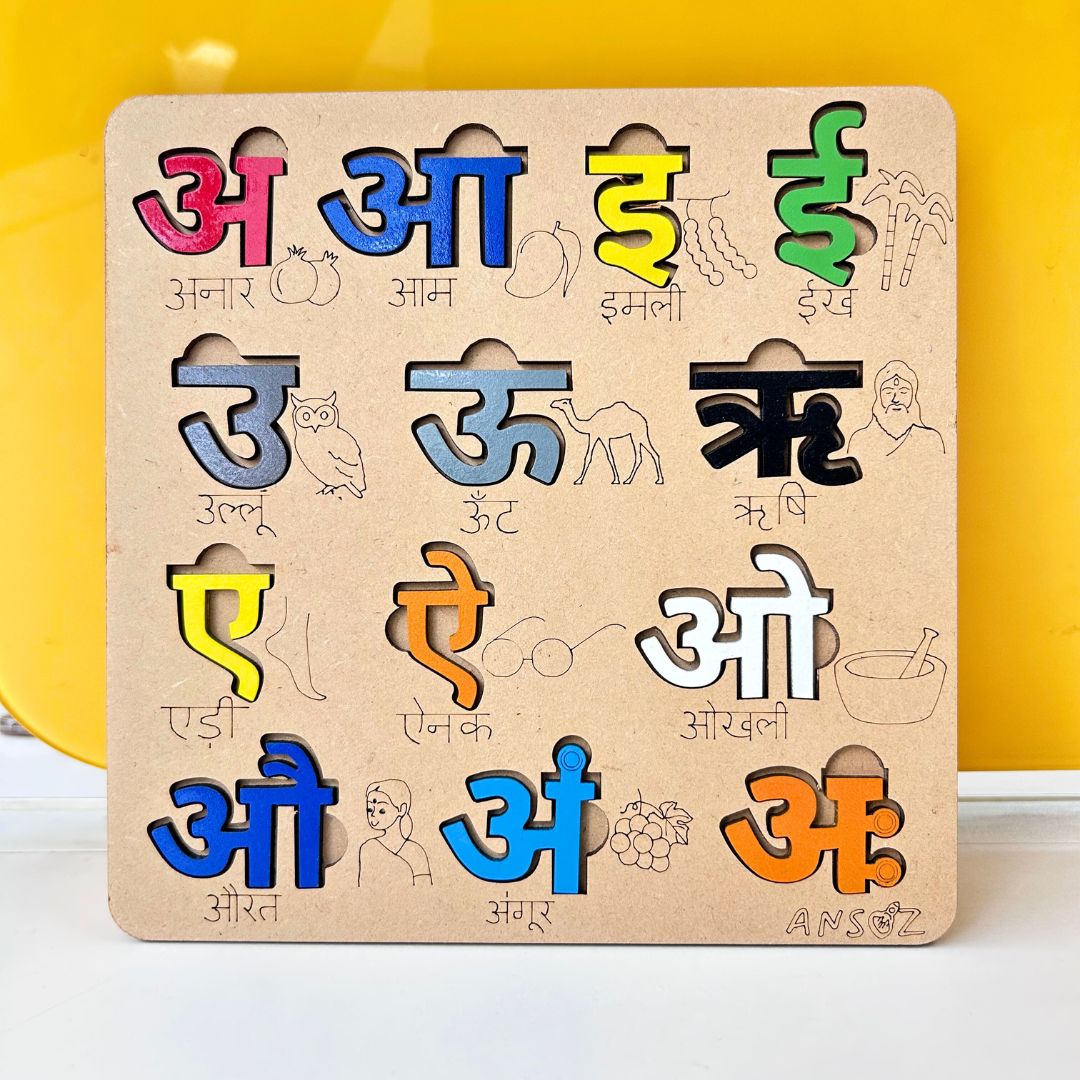 अ आ इ ई
अनार आम इमली ईख
उ ऊ ऋ
उल्लूं ऊँट ऋषि
ए ऐ ओ
एड़ी ऐनक ओखली
औ अं अः
औरत अंगूर
ANSUZ